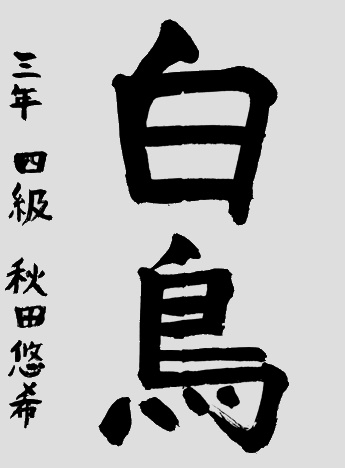 白鳥
三年 四級 秋田悠希